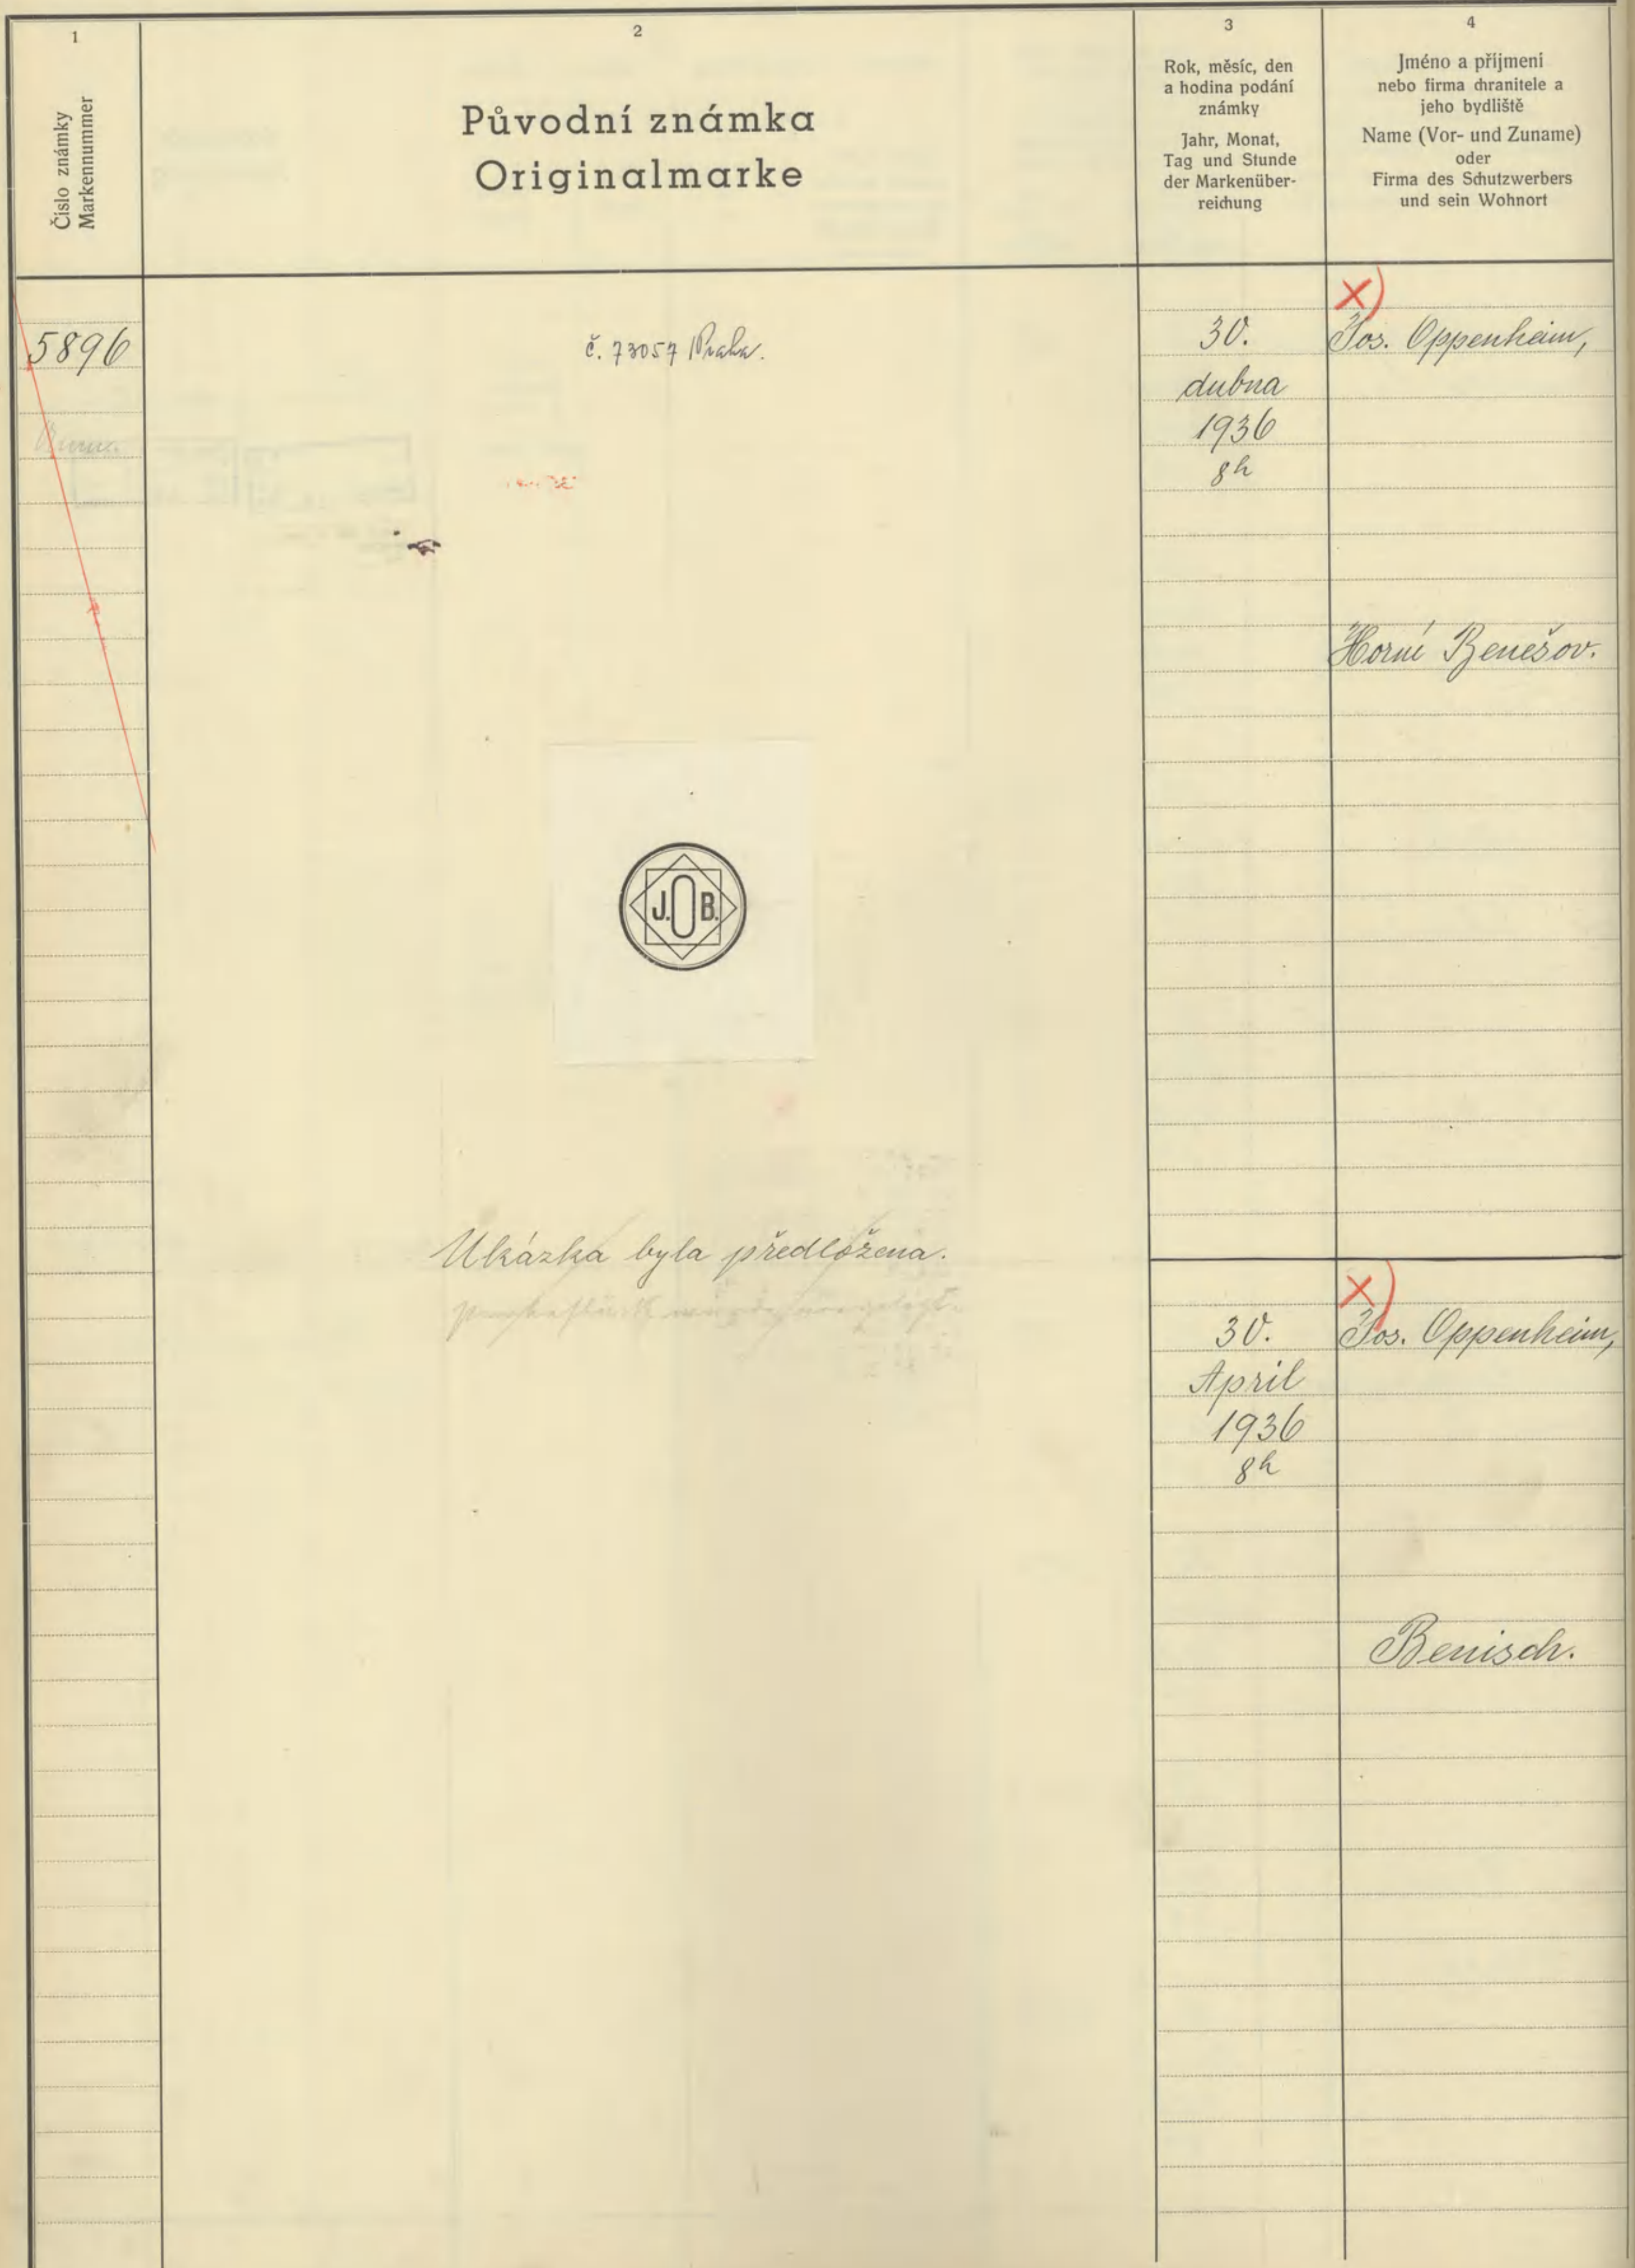 1
Číslo známky
Markennummer
2
Původní známka
Originalmarke
3
Rok, měsíc, den
a hodina podání
známky
Jahr, Monat,
Tag und Stunde
der Markenüber-
reichung
4
Jméno a příjmení
nebo firma chranitele a
jeho bydliště
Name (Vor- und Zuname)
oder
Firma des Schutzwerbers
und sein Wohnort
5896
č. 73057 Praha.
30.
dubna
1936
8h
X)
Jos. Oppenheim,
Horní Benešov.
J. O B.
Ukázka byla předložena.
30.
April
1936
8h
X)
Jos. Oppenheim,
Benisch.